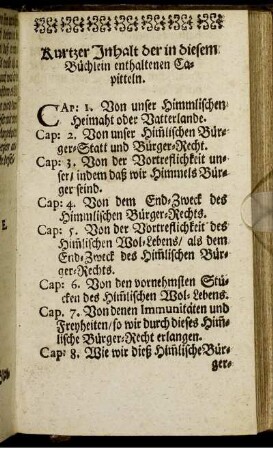 Kurtzer Inhalt der in diesem
Büchlein enthaltenen Ca-
pitteln.
CAP: 1. Von unser Himmlischen
Heimaht oder Vatterlande.
Cap: 2. Von unser Him̃lischen Bür-
ger-Statt und Bürger-Recht.
Cap: 3. Von der Vortreflichkeit un-
ser/ indem daß wir Himmels Bür-
ger seind.
Cap: 4. Von dem End-Zweck des
Himmlischen Bürger-Rechts.
Cap: 5. Von der Vortreflichkeit des
Him̃lischen Wol-Lebens/ als dem
End-Zweck des Him̃lischen Bür-
ger-Rechts.
Cap: 6. Von den vornehmsten Stü-
cken des Him̃lischen Wol-Lebens.
Cap. 7. Von denen Immunitäten und
Freyheiten/ so wir durch dieses Him̃-
lische Bürger-Recht erlangen.
Cap: 8. Wie wir dieß Him̃lische Bür-
ger-